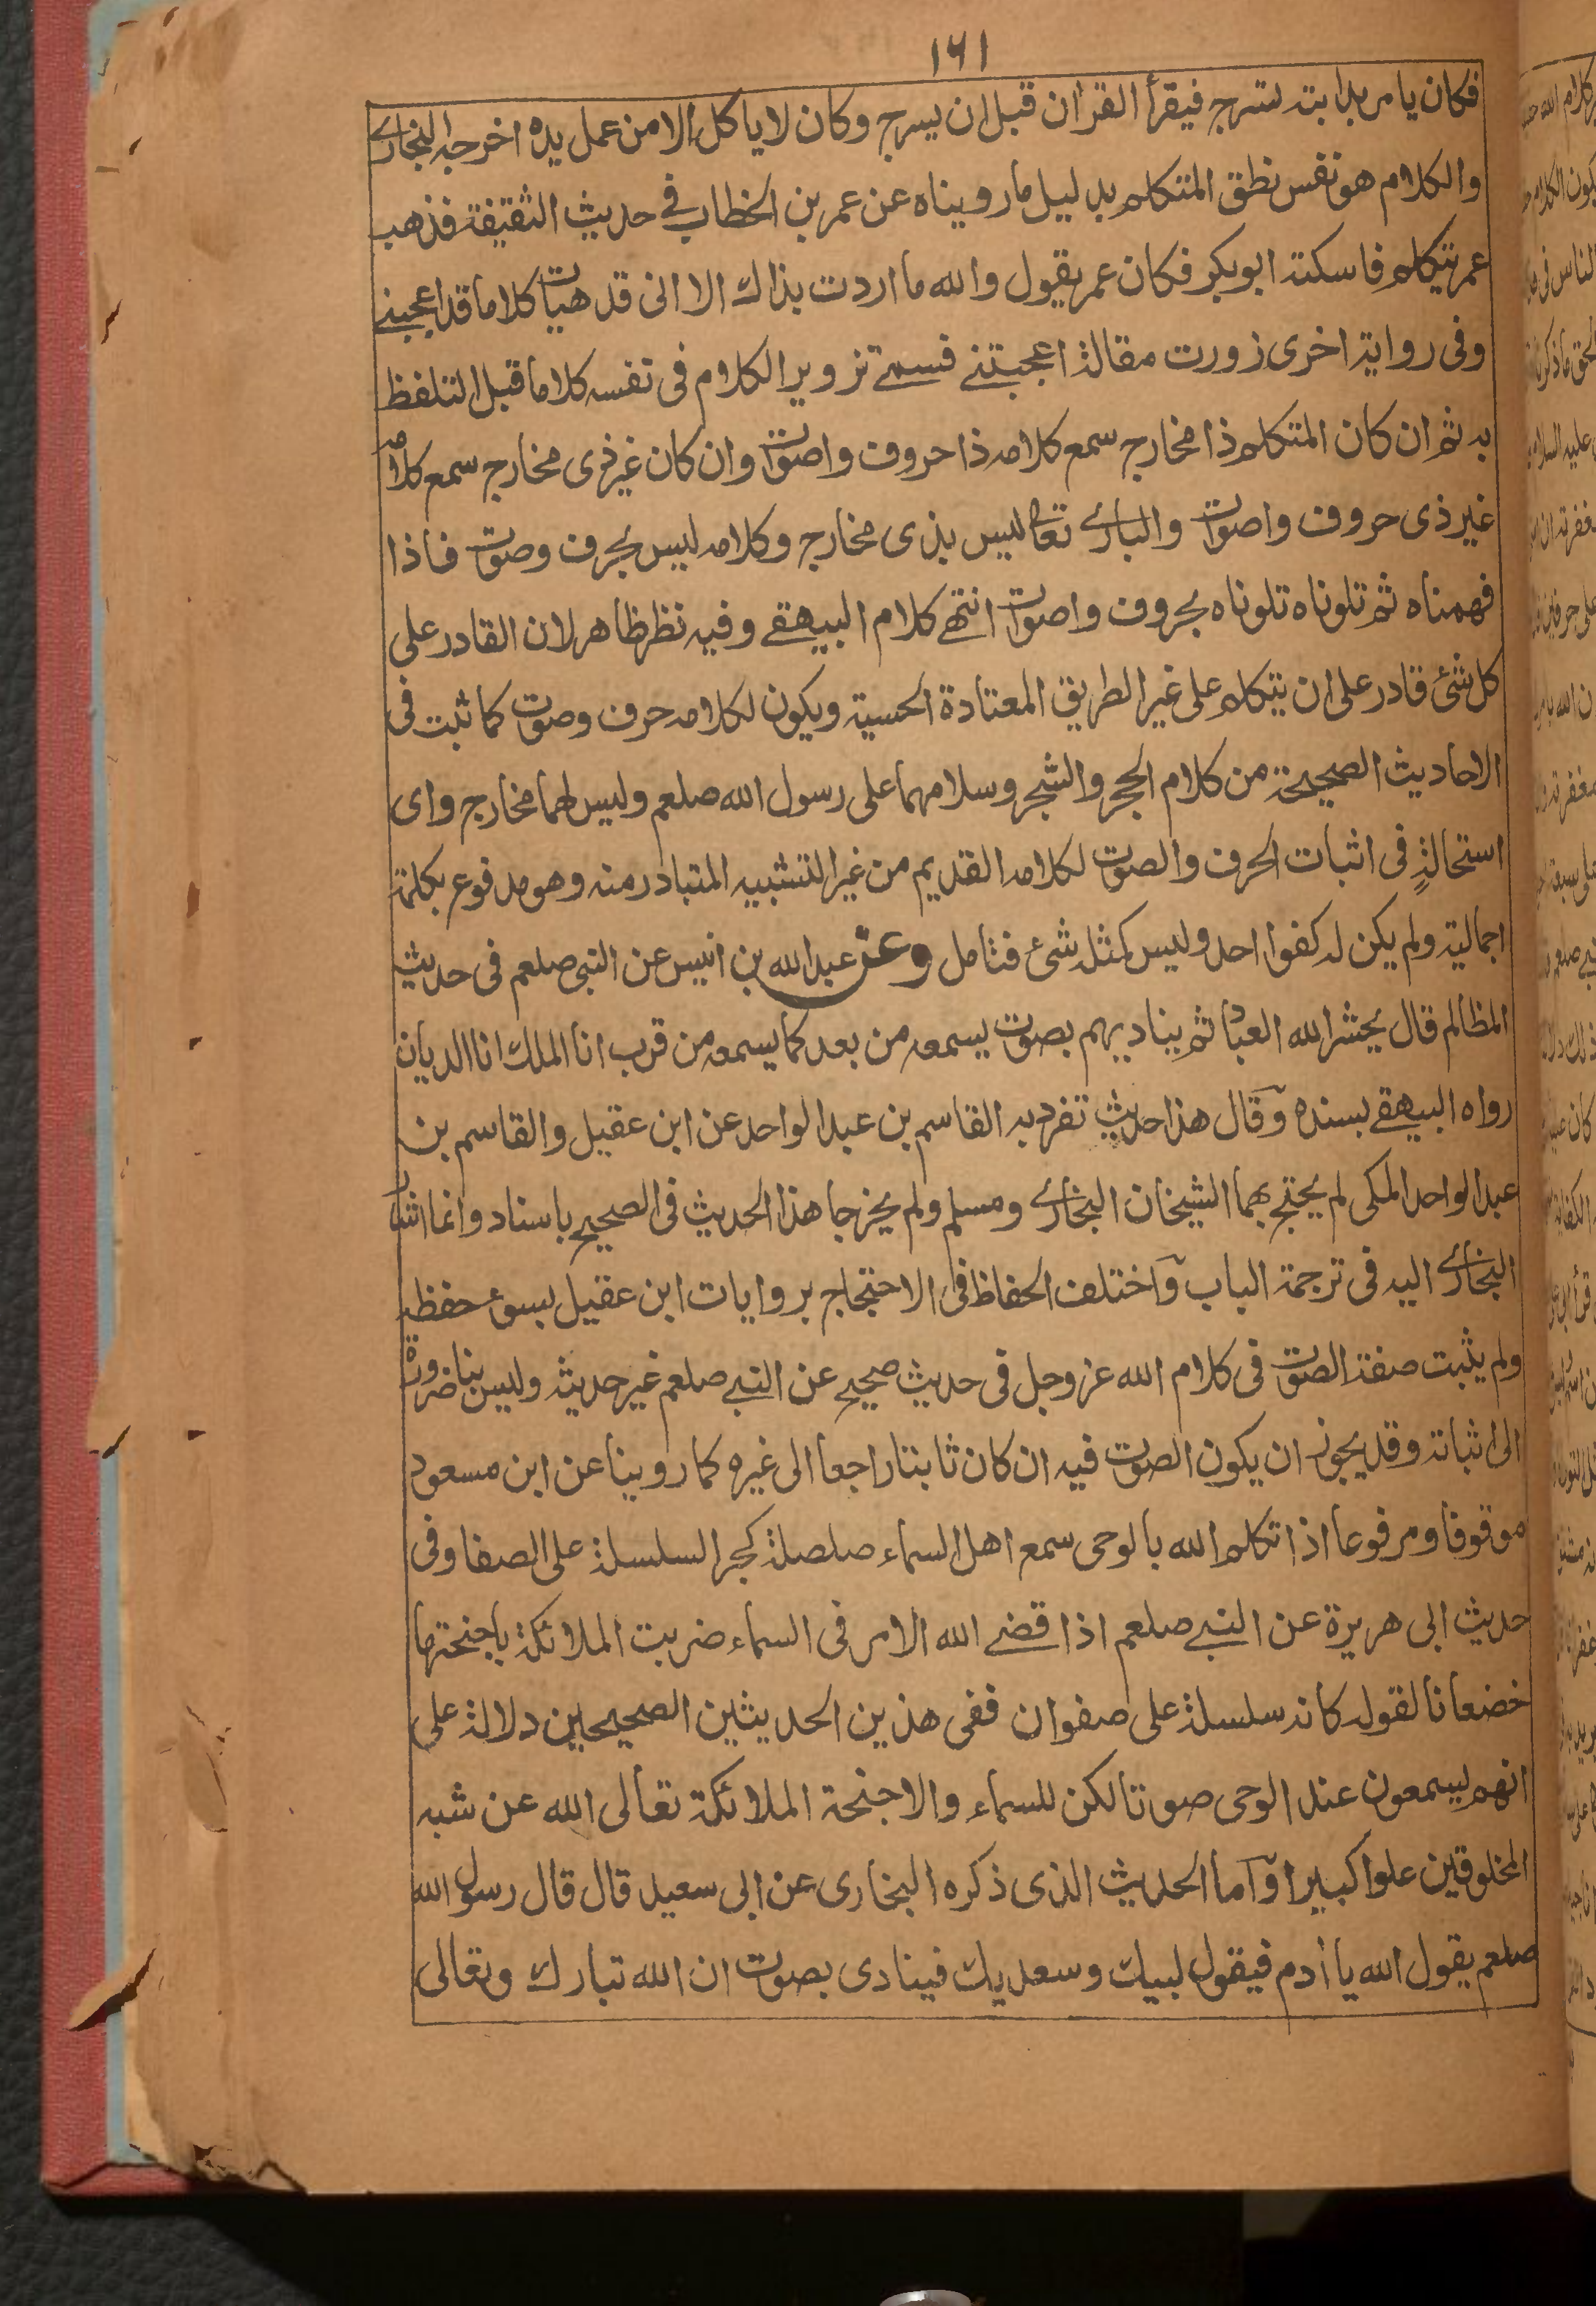 ١٦١
فكان يامر بدابته تسرج فيقرأ القران قبل ان يسرج وكان لا ياكل الا من عمل يده اخرجه البخارى
والكلام هو نفس نطق المتكلم بدليل ما رويناه عن عمر بن الخطاب فى حديث الثقيفة فذهب
عمر يتكلم فاسكته ابوبكر فكان عمر يقول والله ما اردت بذاك الا انى قد هيات كلاما قد اعجبنى
وفى رواية اخرى زورت مقالة اعجبتنى فسمى تزوير الكلام فى نفسه كلاما قبل التلفظ
به ثم ان كان المتكلم ذا مخارج سمع كلامه ذا حروف واصوات وان كان غير ذى مخارج سمع كلامه
غير ذى حروف واصوات والبارى تعا ليس بذى مخارج وكلامه ليس بحرف وصوت فاذا
فهمناه ثم تلوناه تلوناه بحروف واصوات انتهى كلام البيهقى وفيه نظر ظاهر لان القادر على
كل شئ قادر على ان يتكلم على غير الطريق المعتادة الحسية ويكون لكلامه حرف وصوت كما ثبت فى
الاحاديث الصحيحة من كلام الحجر والشجر وسلامهما على رسول الله صلعم وليس لهما مخارج واى
استحالةٍ فى اثبات الحرف والصوت لكلامه القديم من غير التشبيه المتبادر منه وهو مدفوع بكلمة
اجمالية ولم يكن له كفوا احد وليس كمثله شئ فتامل وعن عبد الله بن انيس عن النبى صلعم فى حديث
المظالم قال يحشر الله العباد ثم يناديهم بصوت يسمعه من بعد كما يسمعه من قرب انا الملك انا الديان
رواه البيهقى بسنده وقال هذا حديث تفرد به القاسم بن عبد الواحد عن ابن عقيل والقاسم بن
عبد الواحد المكى لم يحتج بهما الشيخان البخارى ومسلم ولم يخرجا هذا الحديث فى الصحيح باسناد وانما اشار
البخارى اليه فى ترجمة الباب واختلف الحفاظ فى الاحتجاج بروايات ابن عقيل بسوء حفظه
ولم يثبت صفة الصوت فى كلام الله عز وجل فى حديث صحيح عن النبى صلعم غير حديثه وليس بنا ضرورة
الى اثباته وقد يجوز ان يكون الصوت فيه ان كان ثابتا راجعا الى غيره كما روينا عن ابن مسعود
موقوفا ومرفوعا اذا تكلم الله بالوحى سمع اهل السماء صلصلة كجر السلسلة على الصفا وفى
حديث ابى هريرة عن النبى صلعم اذا قضى الله الامر فى السماء ضربت الملائكة باجنحتها
خضعانا لقوله كانه سلسلة على صفوان ففى هذين الحديثين الصحيحين دلالة على
انهم يسمعون عند الوحى صوتا لكن للسماء والاجنحة الملائكة تعالى الله عن شبه
المخلوقين علوا كبيرا واما الحديث الذى ذكره البخارى عن ابى سعيد قال قال رسول الله
صلعم يقول الله يا أدم فيقول لبيك وسعديك فينادى بصوت ان الله تبارك وتعالى